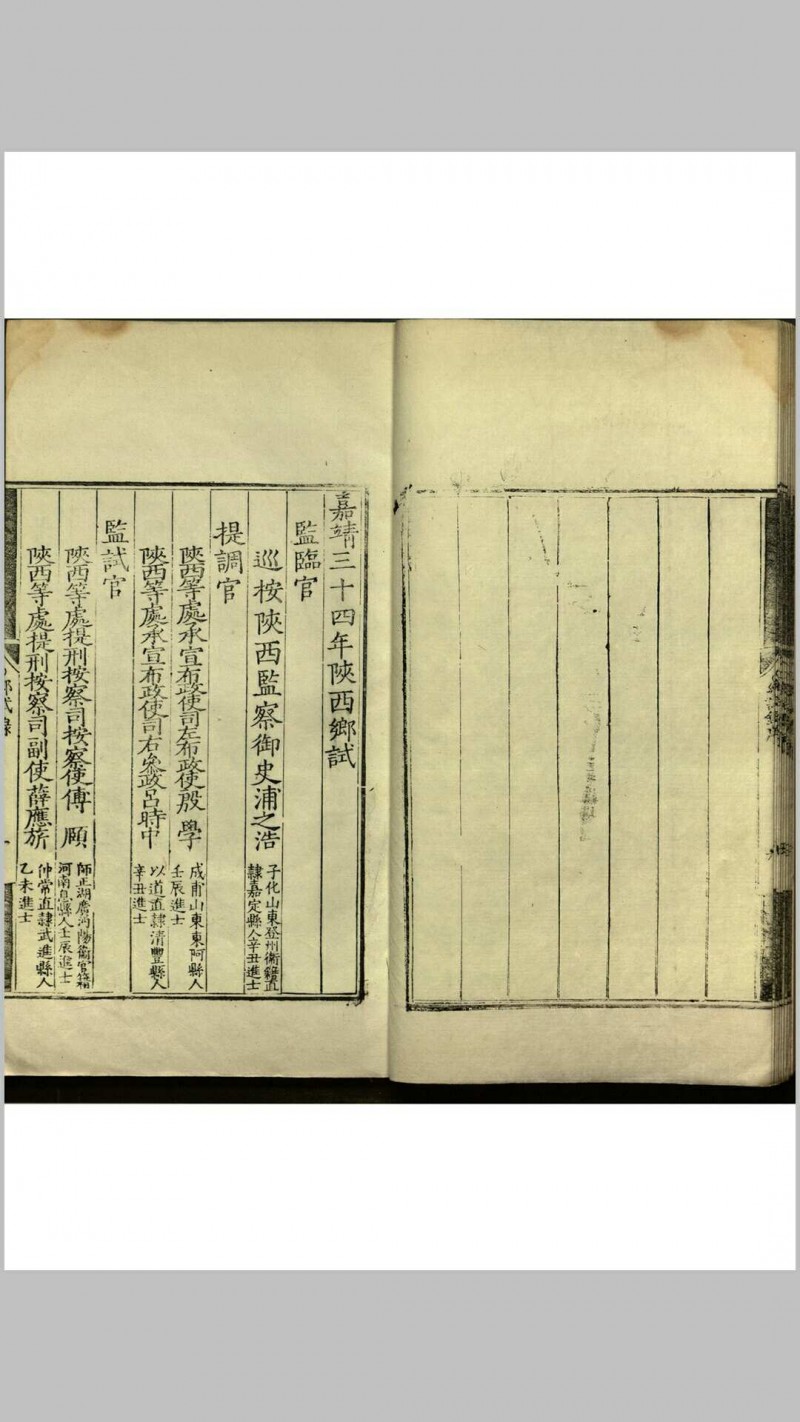 嘉靖三十四年陝西鄉試
監臨官
巡按陝西監察御史浦之浩
子化山東登州衛籍直
隸嘉定縣人辛丑進士
提調官
陝西等處承宣布政使司左布政使殷學
成甫山東東阿縣人
壬辰進士
陝西等處承宣布政使司右叅政呂時中
以道直隸清豐縣人
辛丑進士
監試官
陝西等處提刑按察司按察使傅頤
師正湖廣沔陽衛官籍
河南息縣人壬辰進士
陝西等處提刑按察司副使薛應旂
仲常直隸武進縣人
乙未進士
鄉試錄
一